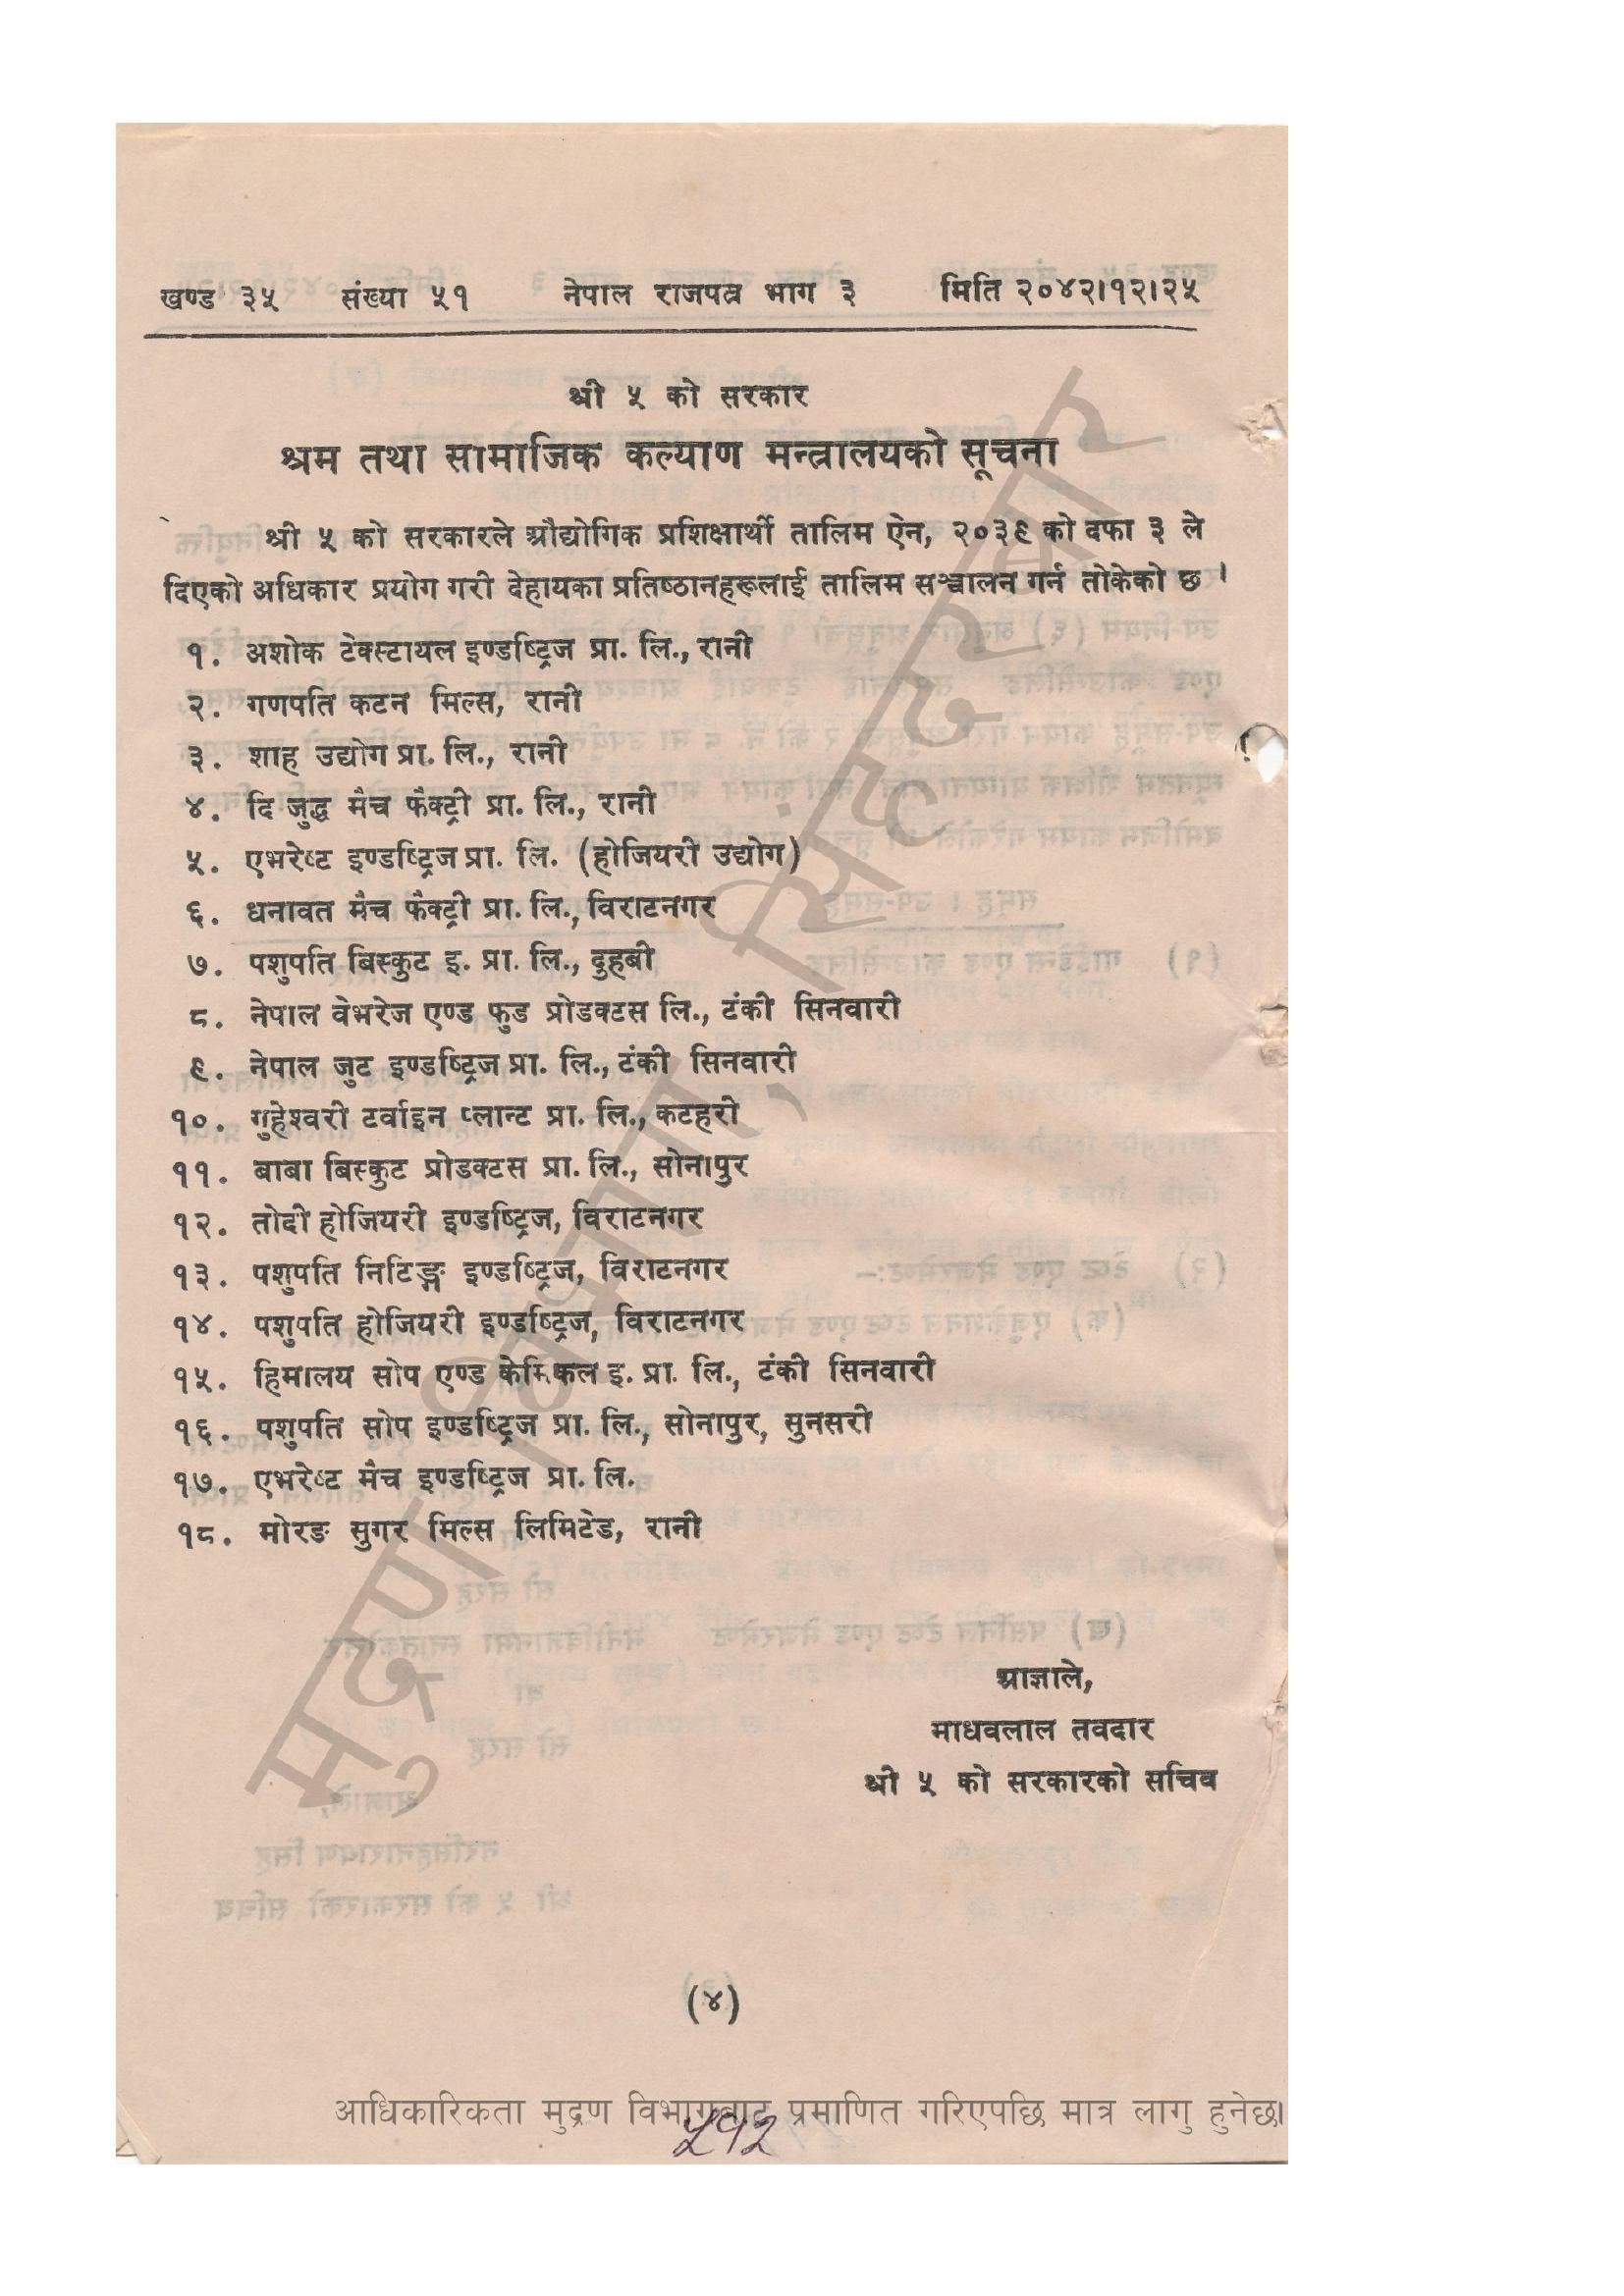 खण्ड ३५ संख्या ५१ नेपाल राजपत्र भाग ३ मिति २०४२।१२।२५
श्री ५ को सरकार
श्रम तथा सामाजिक कल्याण मन्त्रालयको सूचना
श्री ५ को सरकारले औद्योगिक प्रशिक्षार्थी तालिम ऐन, २०३९ को दफा ३ ले
दिएको अधिकार प्रयोग गरी देहायका प्रतिष्ठानहरूलाई तालिम सञ्चालन गर्न तोकेको छ ।
१. अशोक टेक्स्टायल इण्डष्ट्रिज प्रा. लि., रानी
२. गणपति कटन मिल्स, रानी
३. शाह उद्योग प्रा. लि., रानी
४. दि जुद्ध मैच फैक्ट्री प्रा. लि., रानी
५. एभरेष्ट इण्डष्ट्रिज प्रा. लि. (होजियरी उद्योग)
६. धनावत मैच फैक्ट्री प्रा. लि., विराटनगर
७. पशुपति बिस्कुट इ. प्रा. लि., दुहबी
८. नेपाल वेभरेज एण्ड फुड प्रोडक्टस लि., टंकी सिनवारी
९. नेपाल जुट इण्डष्ट्रिज प्रा. लि., टंकी सिनवारी
१०. गुहेश्वरी टर्वाइन प्लान्ट प्रा. लि., कटहरी
११. बाबा बिस्कुट प्रोडक्टस प्रा. लि., सोनापुर
१२. तोदी होजियरी इण्डष्ट्रिज, विराटनगर
१३. पशुपति निटिङ्ग इण्डष्ट्रिज, विराटनगर
१४. पशुपति होजियरी इण्डष्ट्रिज, विराटनगर
१५. हिमालय सोप एण्ड केमिकल इ. प्रा. लि., टंकी सिनवारी
१६. पशुपति सोप इण्डष्ट्रिज प्रा. लि., सोनापुर, सुनसरी
१७. एभरेष्ट मैच इण्डष्ट्रिज प्रा. लि.
१८. मोरङ सुगर मिल्स लिमिटेड, रानी
आज्ञाले,
माधवलाल तवदार
श्री ५ को सरकारको सचिव
(४)
मुद्रण विभाग, सिंहदरबार
आधिकारिकता मुद्रण विभागबाट प्रमाणित गरिएपछि मात्र लागु हुनेछ।
५१२